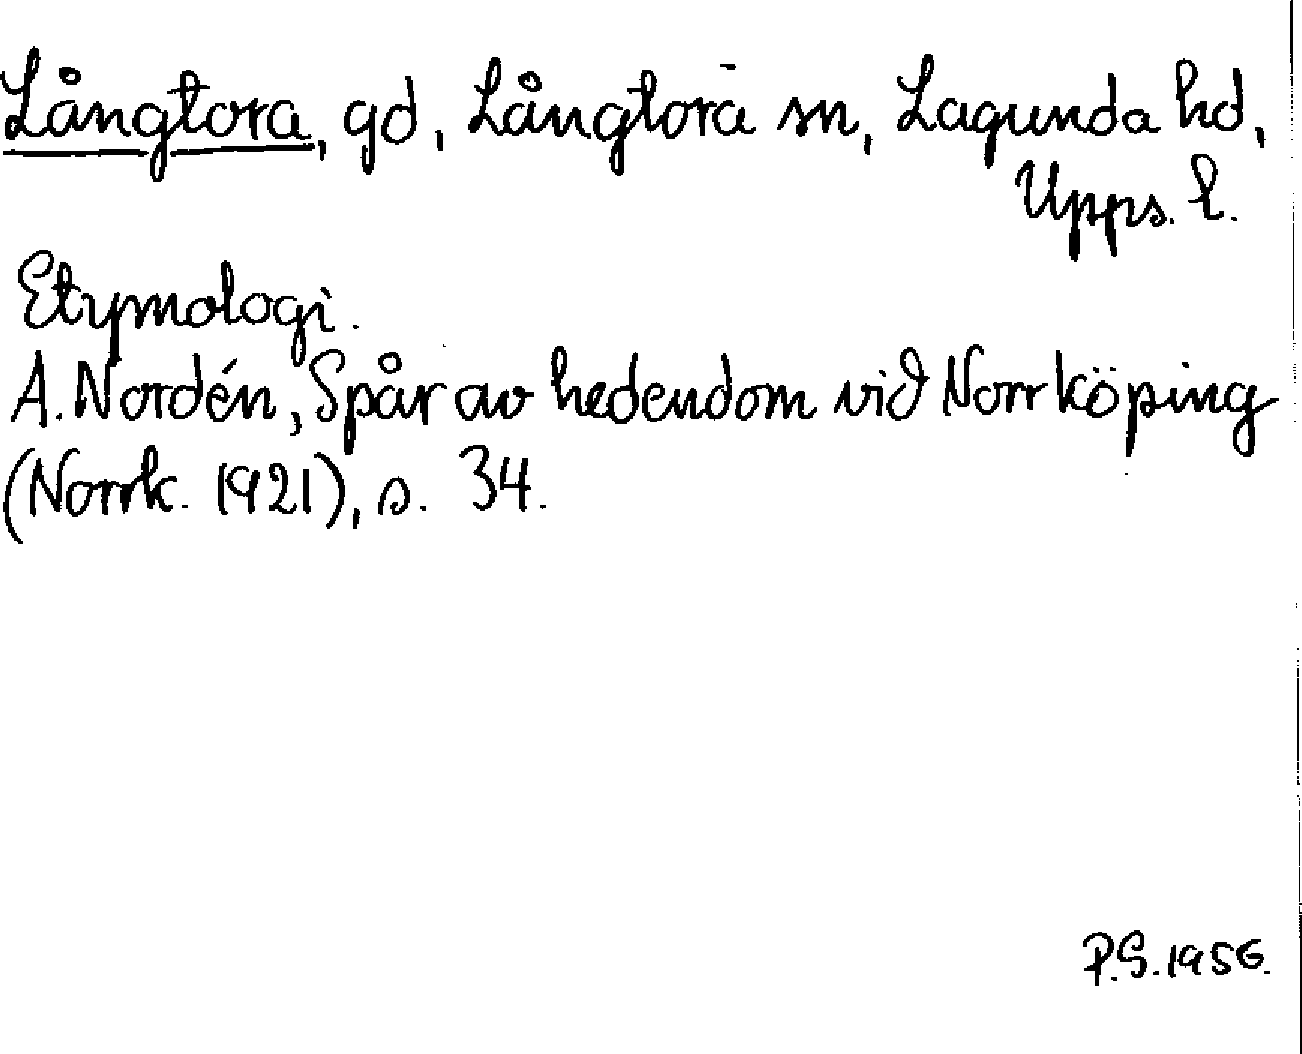 Långtora, gd, Långtora sn, Lagunda hd,
Upps. l.
Etymologi.
A. Nordén, Spår av hedendom vid Norrköping
(Norrk. 1921), s. 34.
P.S. 1956.